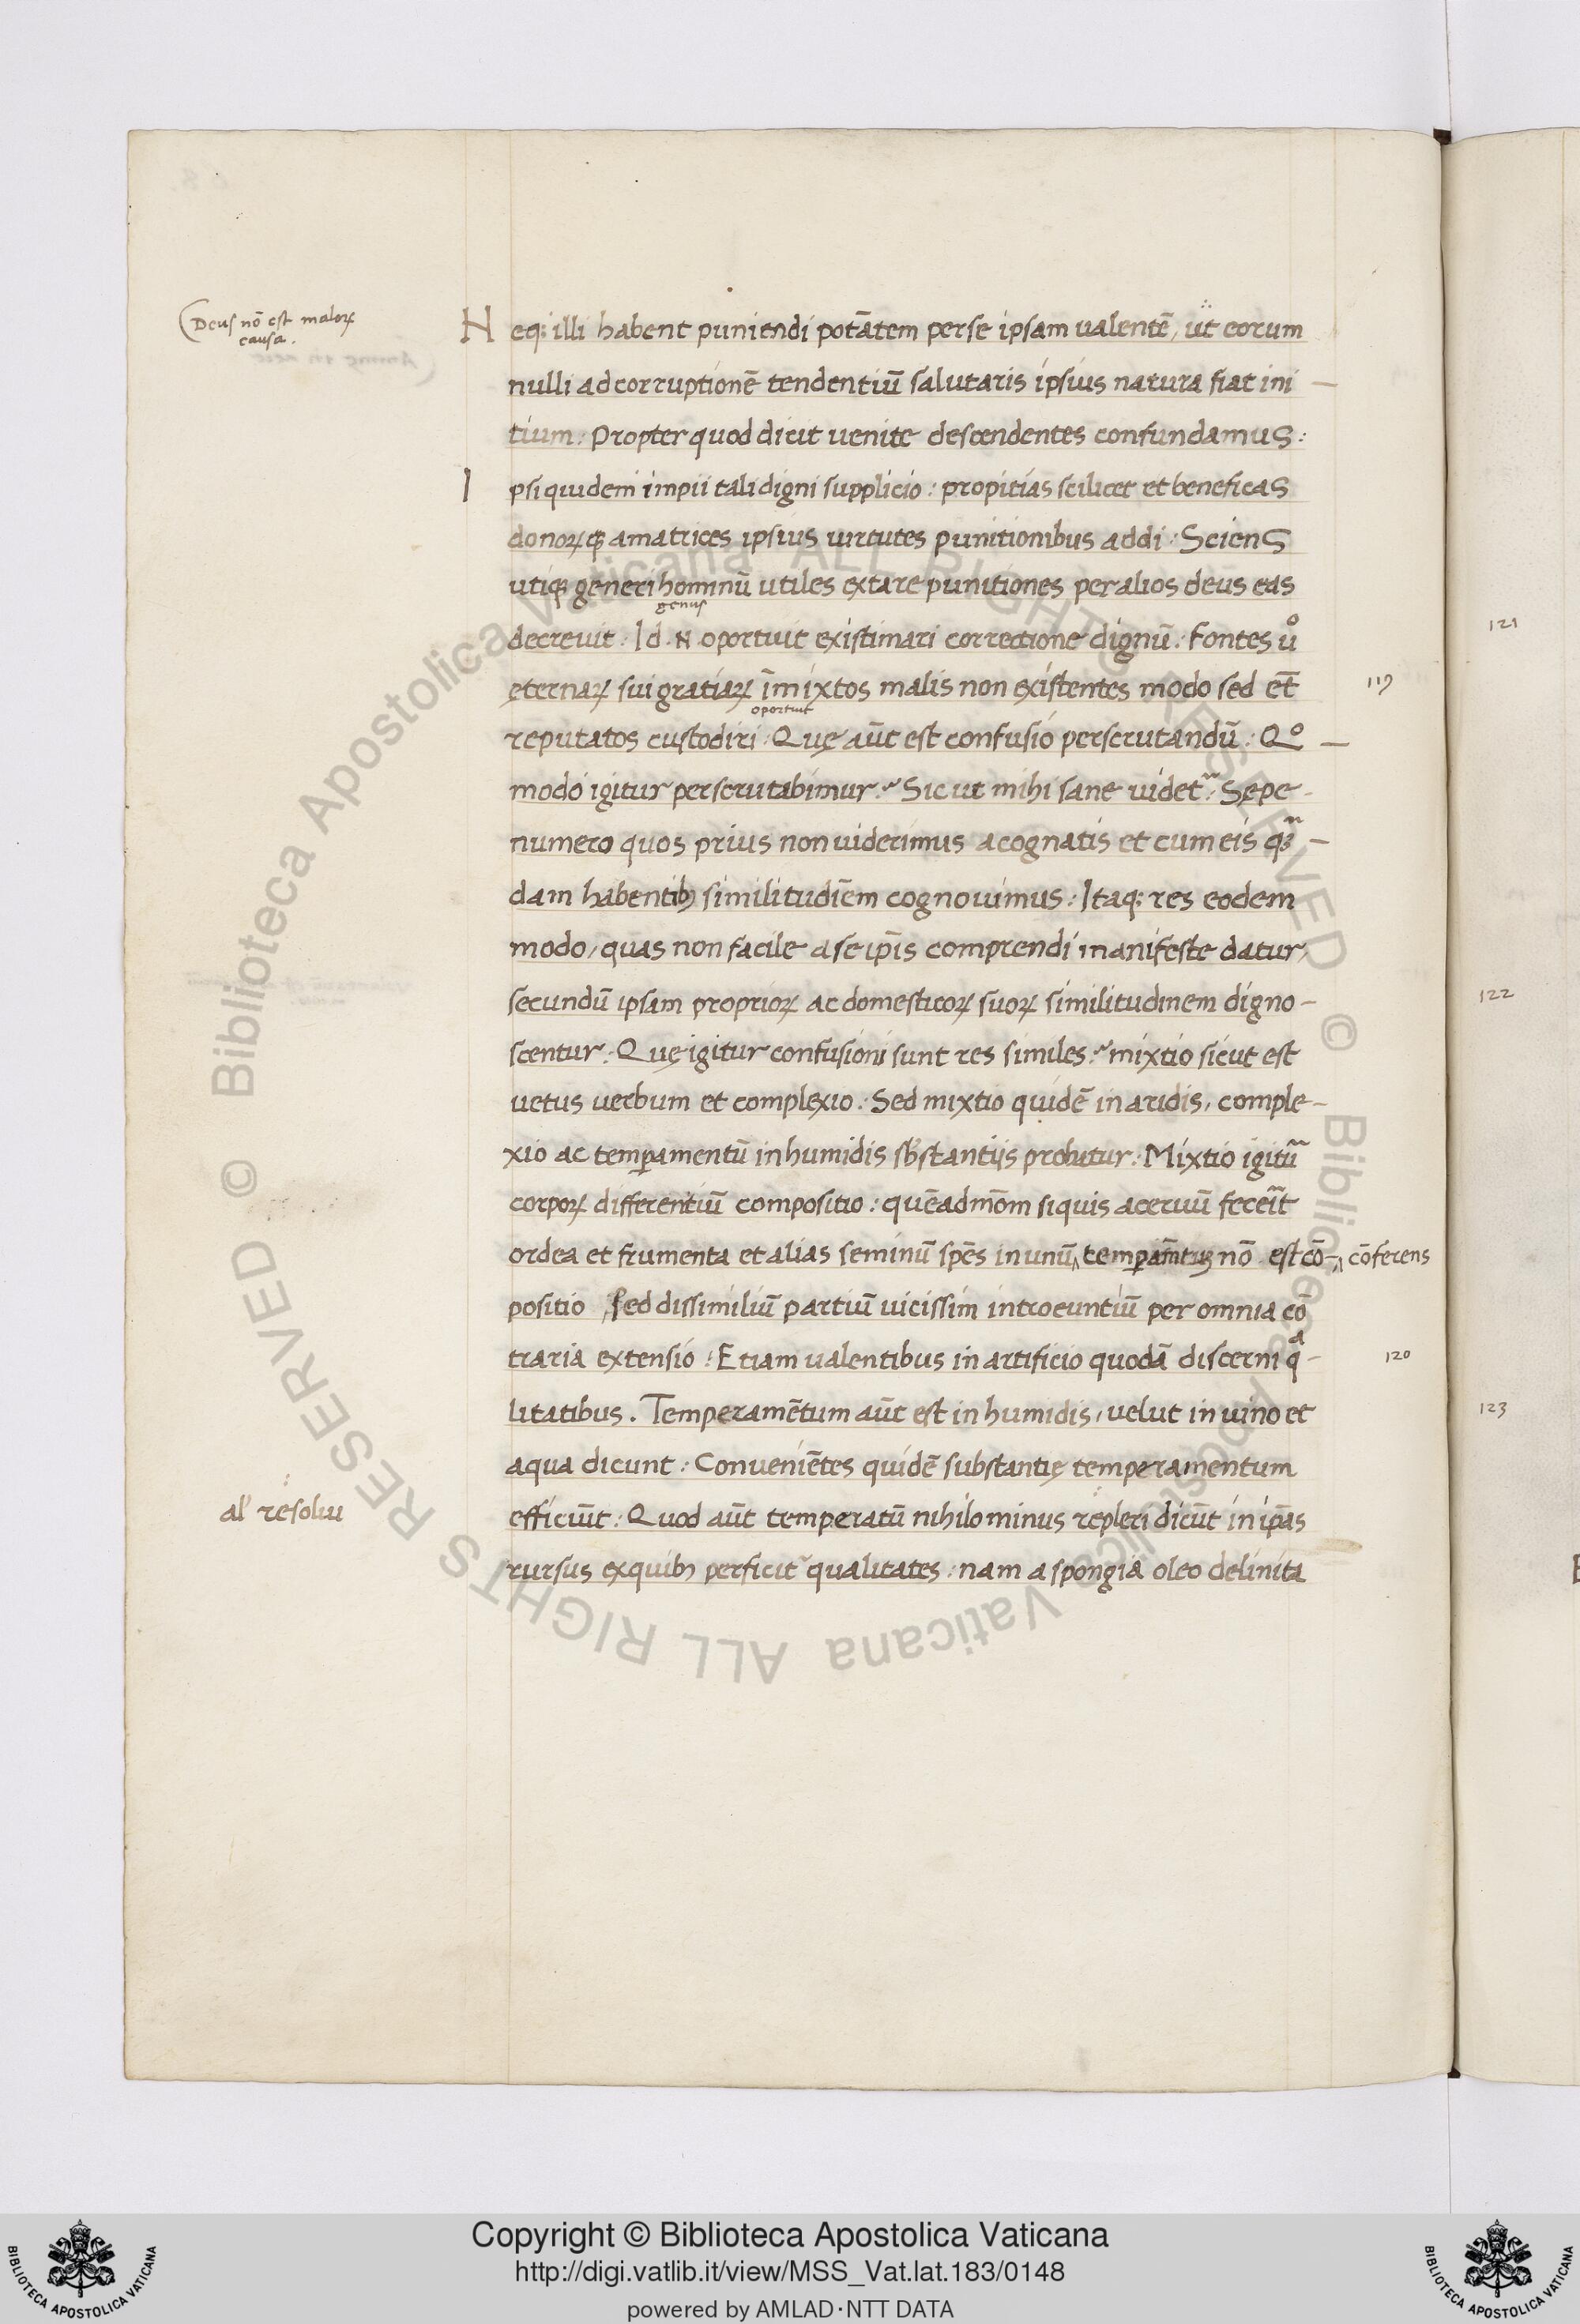 (Deus nō est maloꝝ
causa.
Neq; illi habent puniendi potātem perse ipsam ualentē, ut eorum
nulli ad corruptionē tendentiū salutaris ipsius natura fiat ini –
tium: Propter quod dicit uenite descendentes confundamus:
Ipsi quidem impii tali digni supplicio: propitias scilicet et beneficas
donoꝝqꝫ amatrices ipsius uirtutes punitionibus addi: Sciens
utiqꝫ generi hominū utiles extare punitiones per alios deus eas
genus
decreuit: Id. N. oportuit existimari correctione dignū: Fontes uº
119
ęternaꝝ sui gratiaꝝ īmixtos malis non existentes modo sed et̄
oportuit
reputatos custodiri: Quę aūt est confusio perscrutandū: Qº –
modo igitur perscrutabimur? Sic ut mihi sane uidet~: Sępe –
numero quos prius non uiderimus a cognatis et cum eis q̄ –
dam habentibꝫ similitudiēm cognouimus: Itaq; res eodem
modo, quas non facile a se ip̄is comprendi manifeste datur,
secundū ipsam proprioꝝ ac domesticoꝝ suoꝝ similitudinem digno –
scentur: Quę igitur confusioni sunt res similes? mixtio sicut est
uetus uerbum et complexio: Sed mixtio quidē in aridis, comple –
xio ac temꝑamentū in humidis sb̄stantijs probatur: Mixtio igitu~
corpoꝝ differentiū compositio: quēadmōm si quis aceruū feceīt
ordea et frumenta et alias seminū spēs in unū‸ temꝑam̄tuꝫ nō est cō –‸ cōferens
positio, sed dissimiliū partiū uicissim introeuntiū per omnia cō
traria extensio: Etiam ualentibus in artificio quodā discerni qª –
120
litatibus. Temperamētum aūt est in humidis, uelut in uino et
aqua dicunt: Conueniētes quidē substantię temperamentum
efficiūt: Quod aūt temperatū nihilo minus repleri dicūt in ip̄as
al' resolui
rursus ex quibꝫ perficit~ qualitates: nam a spongia oleo delinita
121
122
123
Copyright © Biblioteca Apostolica Vaticana
http://digi.vatlib.it/view/MSS_Vat.lat.183/0148
powered by AMLAD·NTT DATA
BIBLIOTECA APOSTOLICA VATICANA
BIBLIOTECA APOSTOLICA VATICANA
© Biblioteca Apostolica Vaticana ALL RIGHTS RESERVED © Biblioteca Apostolica Vaticana ALL RIGHTS RESERVED